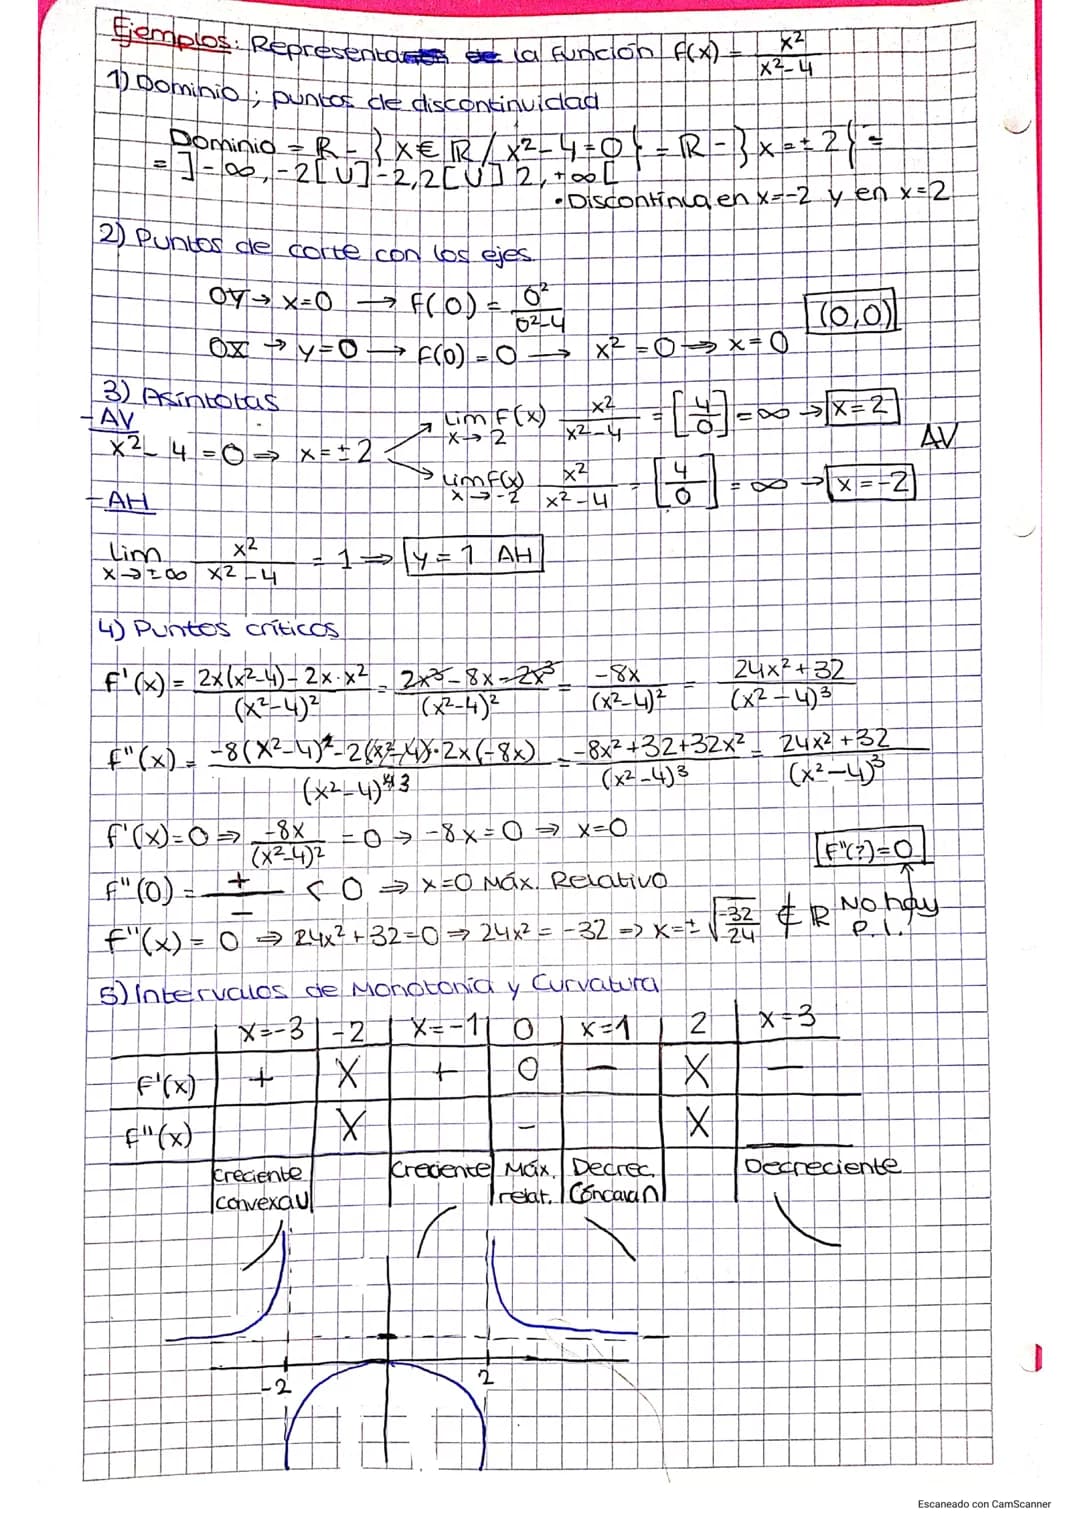 Ejemplos: Representa la función f(x) = x²/(x²-4)
1) Dominio; puntos de discontinuidad
Dominio = R - }x∈ℝ / x²-4=0{ = ℝ - }x=±2{ =
= ]-∞,-2[ U ]-2,2[ U ] 2,+∞[
• Discontinua en x=-2 y en x=2
2) Puntos de corte con los ejes
OY → x=0 → f(0) = 0²/(0²-4)
(0,0)
OX → y=0 → f(0) = 0 → x² = 0 → x=0
3) Asíntotas
-AV
x²-4=0 ⇒ x=±2
lim x→2 f(x) x²/(x²-4) = [4/0] = ∞ → x=2
AV
lim x→-2 f(x) x²/(x²-4) = [4/0] = ∞ → x=-2
-AH
lim x→±∞ x²/(x²-4) = 1 ⇒ y=1 AH
4) Puntos críticos
f'(x) = (2x(x²-4)-2x·x²)/(x²-4)² = (2x³-8x-2x³)/(x²-4)² = -8x/(x²-4)² = (24x²+32)/(x²-4)³
f''(x) = (-8(x²-4)²-2(x²-4)·2x(-8x))/(x²-4)⁴3 = (-8x²+32+32x²)/(x²-4)³ = (24x²+32)/(x²-4)³
f'(x)=0 ⇒ -8x/(x²-4)² = 0 → -8x=0 ⇒ x=0
f''(?)=0
f''(0) = +/- < 0 ⇒ x=0 Máx. Relativo
f''(x) = 0 ⇒ 24x²+32=0 ⇒ 24x² = -32 => x=±√(-32/24) ∉ ℝ No hay P.I.
5) Intervalos de Monotonía y Curvatura
x=-3 | -2 | x=-1 | 0 | x=1 | 2 | x=3
f'(x) + X + 0 - X -
f''(x) X - X
Creciente Creciente Máx. Decrec. Decreciente
convexa U relat. Cóncava ∩
-2 2
Escaneado con CamScanner